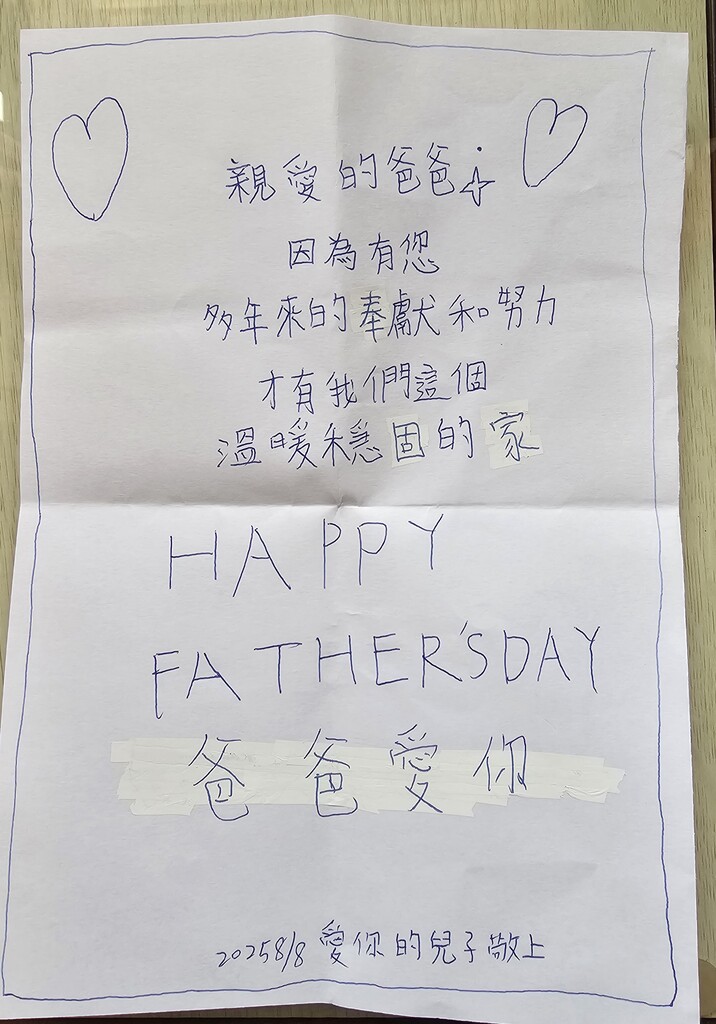 親愛的爸爸
因為有您
多年來的奉獻和努力
才有我們這個
溫暖穩固的家
HAPPY
FATHER'S DAY
爸爸愛你
2025 8/8 愛你的兒子敬上